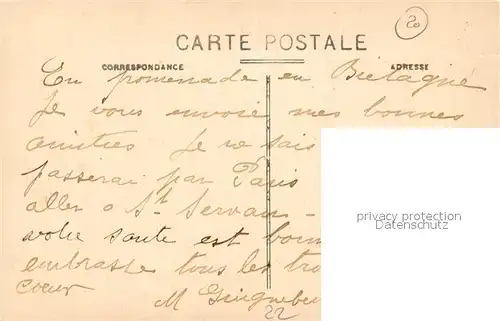 20
CARTE POSTALE
CORRESPONDANCE ADRESSE
En promenade en Bretagne
Je vous envoie mes bonnes
amitiés Je ne sais
passerai par Paris
aller a St Servan -
votre santé est bonn
embrasse tous les tro
coeur
M
22
privacy protection
Datenschutz